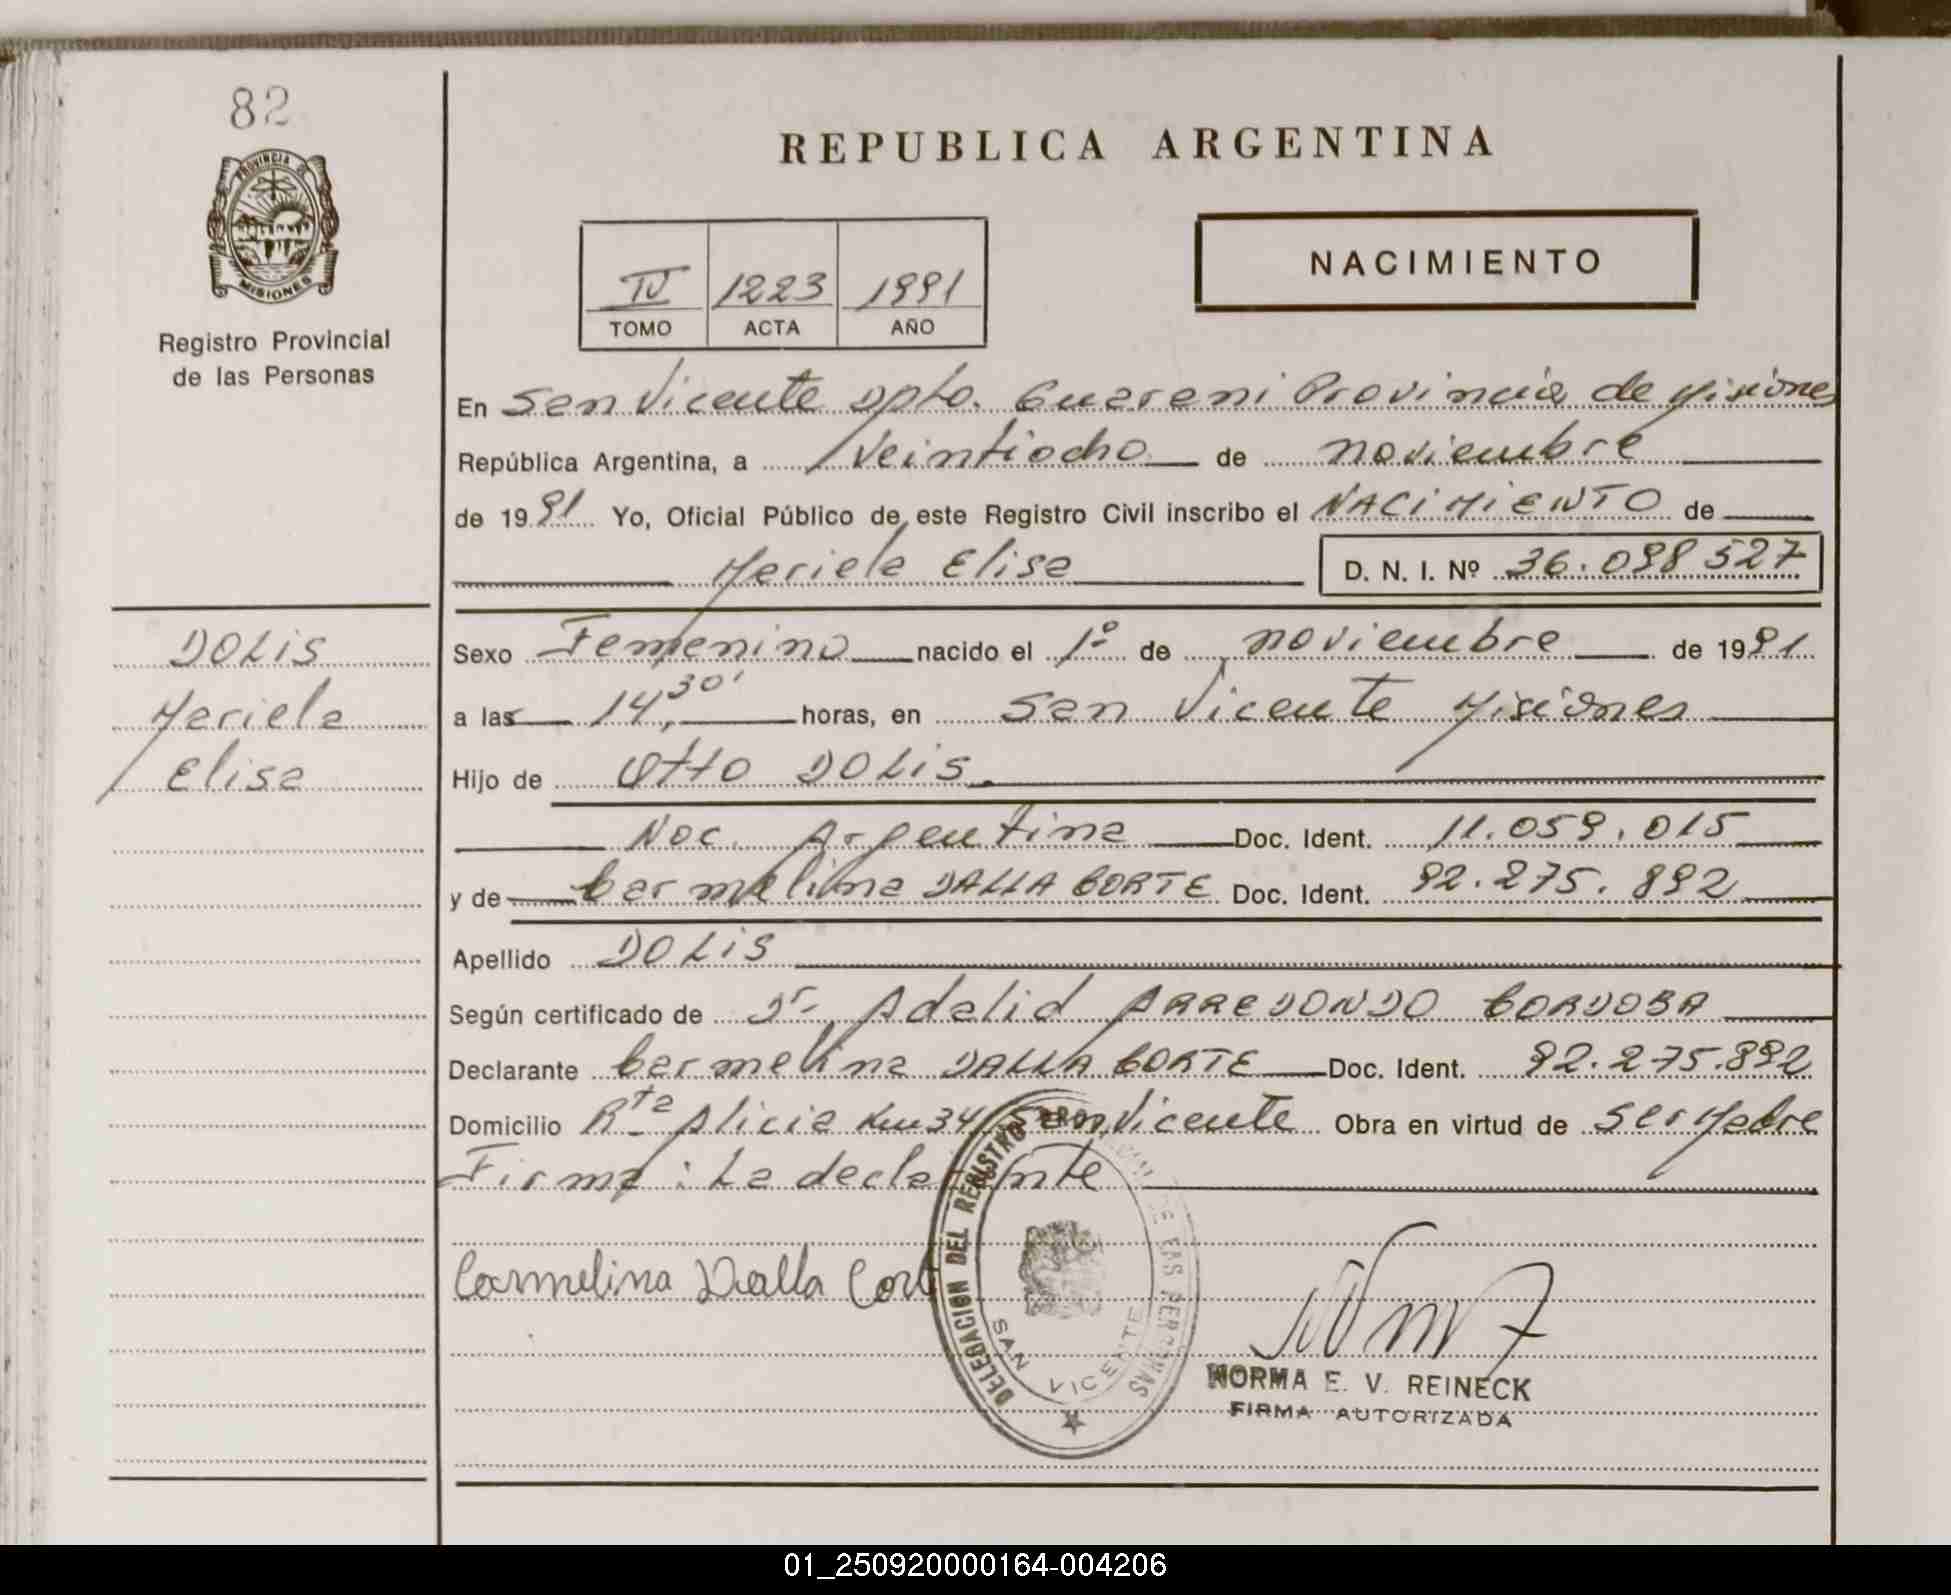 82
PROVINCIA DE
MISIONES
Registro Provincial
de las Personas
REPUBLICA ARGENTINA
IV 1223 1991
TOMO ACTA AÑO
NACIMIENTO
En San Vicente Dpto. Guarani Provincia de Misiones
República Argentina, a Veintiocho de noviembre
de 1991 Yo, Oficial Público de este Registro Civil inscribo el NACIMIENTO de
Mariela Elisa D. N. I. Nº 36.098527
DOLIS
Mariela
Elisa
Sexo Femenino nacido el 1º de noviembre de 1991
a las 14,30' horas, en San Vicente Misiones
Hijo de Otto DOLIS
Nac. Argentina Doc. Ident. 11.059.015
y de Carmelina DALLA CORTE Doc. Ident. 92.275.892
Apellido DOLIS
Según certificado de Dr. Adalid ARREDONDO CORDOBA
Declarante Carmelina DALLA CORTE Doc. Ident. 92.275.892
Domicilio Rta Alicia Km 34 San Vicente Obra en virtud de ser Madre
Firma: La declarante
Carmelina Dalla Cort
DELEGACION DEL REGISTRO DE LAS PERSONAS
SAN VICENTE
NORMA E. V. REINECK
FIRMA AUTORIZADA
01_250920000164-004206